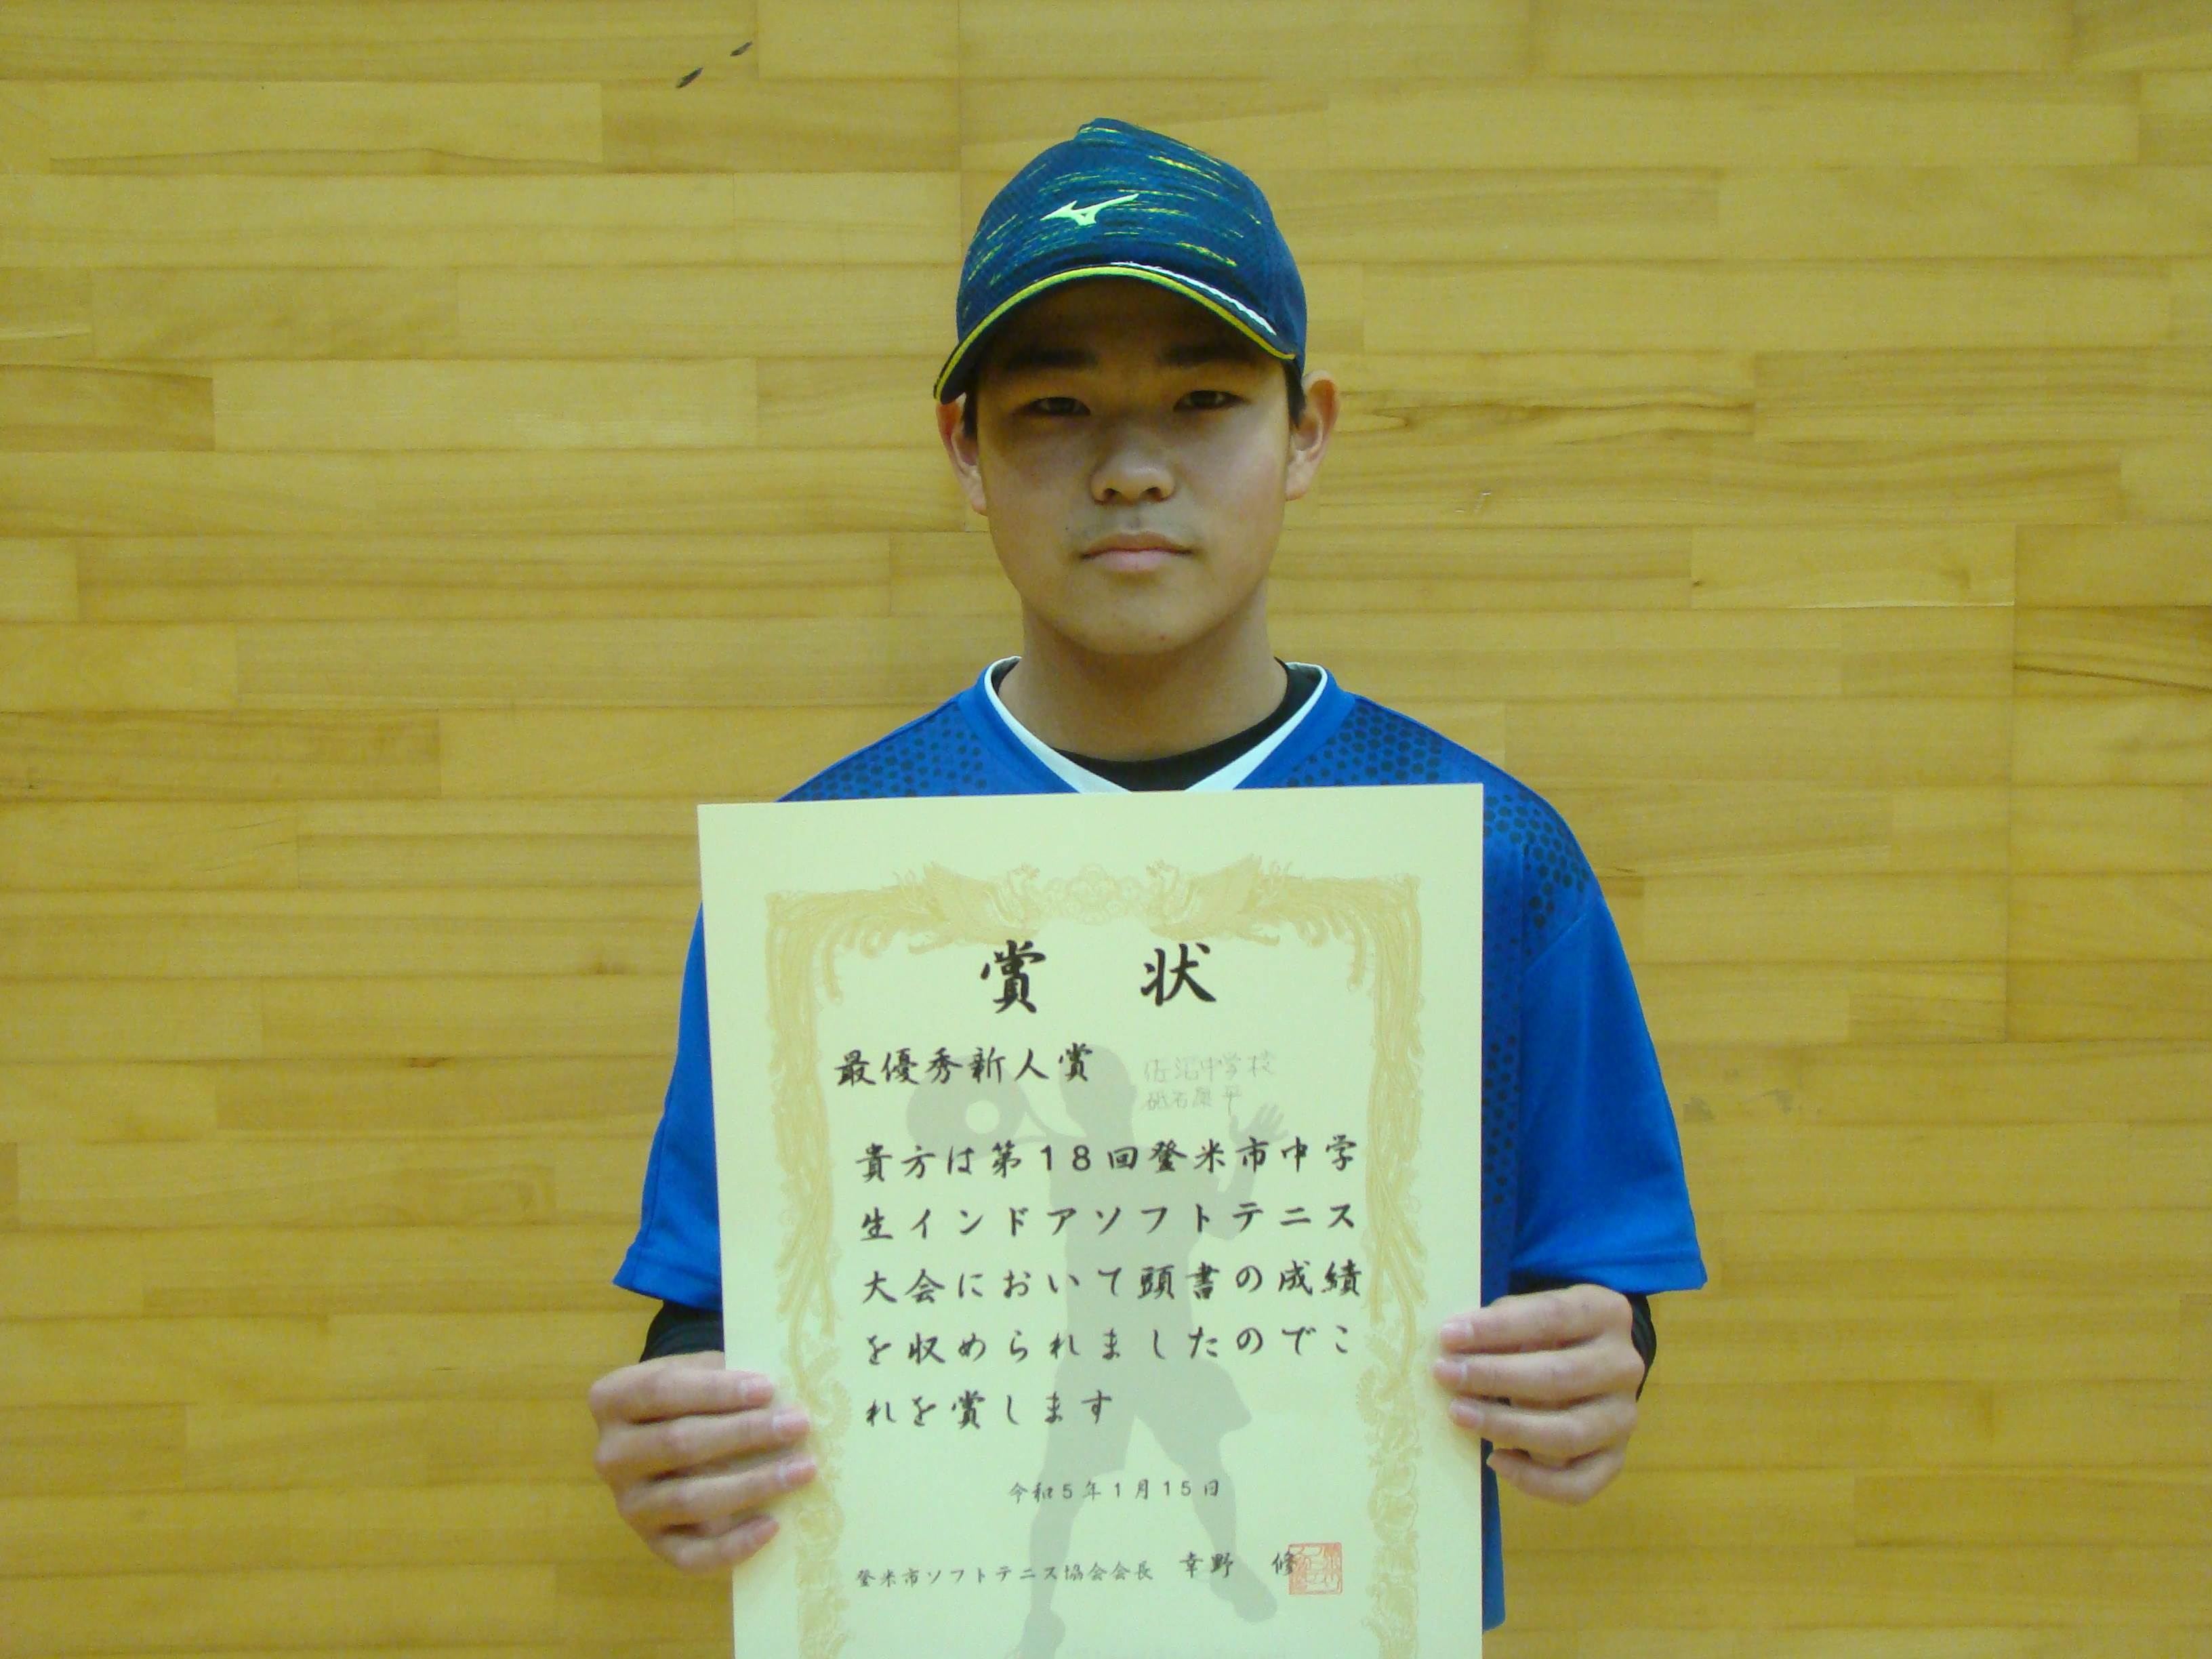 賞 状
最優秀新人賞
佐沼中学校
砥石康平
貴方は第18回登米市中学
生インドアソフトテニス
大会において頭書の成績
を収められましたのでこ
れを賞します
令和5年1月15日
登米市ソフトテニス協会会長 幸野 修